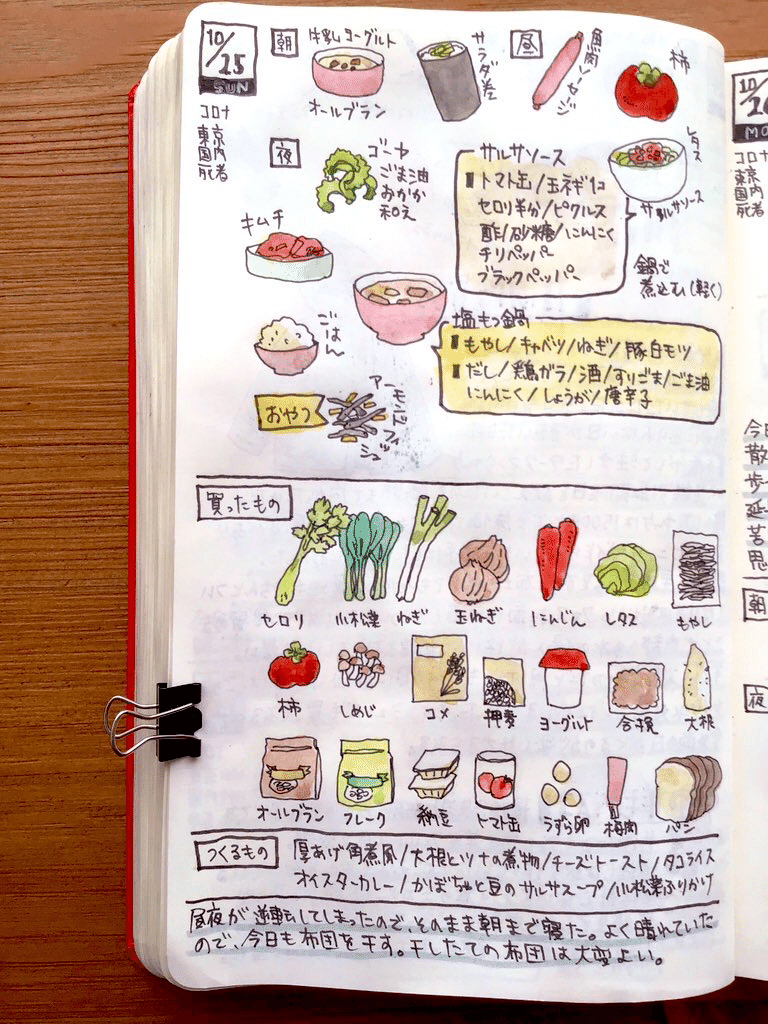 10/25
SUN
コロナ
東京
国内
死者
朝
牛乳ヨーグルト
オールブラン
サラダ巻
昼
魚肉ソーセージ
柿
夜
ゴーヤ
ごま油
おかか
和え
サルサソース
トマト缶/玉ネギ1コ
セロリ半分/ピクルス
酢/砂糖/にんにく
チリペッパー
ブラックペッパー
レタス
サルサソース
鍋で
煮込む(軽く)
キムチ
ごはん
塩もつ鍋
もやし/キャベツ/ねぎ/豚白モツ
だし/鶏ガラ/酒/すりごま/ごま油
にんにく/しょうが/唐辛子
おやつ
アーモンドフィッシュ
買ったもの
セロリ 小松菜 ねぎ 玉ねぎ にんじん レタス もやし
柿 しめじ コメ 押麦 ヨーグルト 合挽 大根
オールブラン フレーク 納豆 トマト缶 うずら卵 梅肉 パン
つくるもの
厚あげ角煮風/大根とツナの煮物/チーズトースト/タコライス
オイスターカレー/かぼちゃと豆のサルサスープ/小松菜ふりかけ
昼夜が逆転してしまったので、そのまま朝まで寝た。よく晴れていた
ので、今日も布団を干す。干したての布団は大変よい。
10/
MO
コロナ
東京
国内
死者
今日
散
歩
延
苦
思
朝
夜